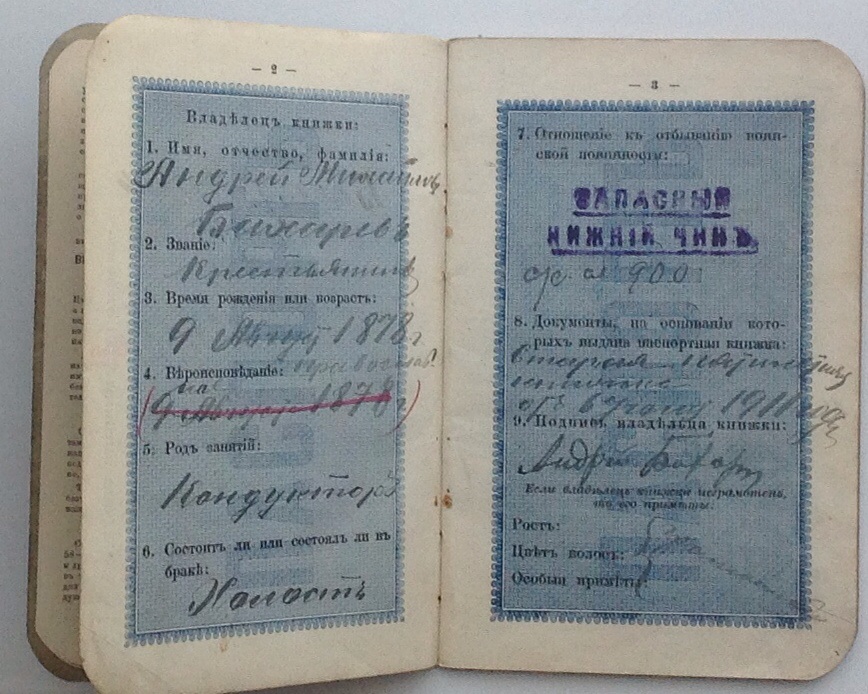 — 2 —
Владѣлецъ книжки:
1. Имя, отчество, фамилія:
Андрей Михайловъ
Бахаревъ
2. Званіе:
Крестьянинъ
3. Время рожденія или возрастъ:
9 1878 г
4. Вѣроисповѣданіе: православ.
9 1878 г
5. Родъ занятій:
Кондукторъ
6. Состоитъ ли или состоялъ ли въ
бракѣ:
Холостъ
— 3 —
7. Отношеніе къ отбыванію воин-
ской повинности:
ЗАПАСНЫЙ
НИЖНІЙ ЧИНЪ.
900
8. Документы, на основаніи кото-
рыхъ выдана паспортная книжка:
Старая
книжка
отъ 6 1911 года
9. Подпись владѣльца книжки:
Андрей
Если владѣлецъ книжки неграмотенъ,
то его примѣты:
Ростъ:
Цвѣтъ волосъ:
Особыя примѣты: